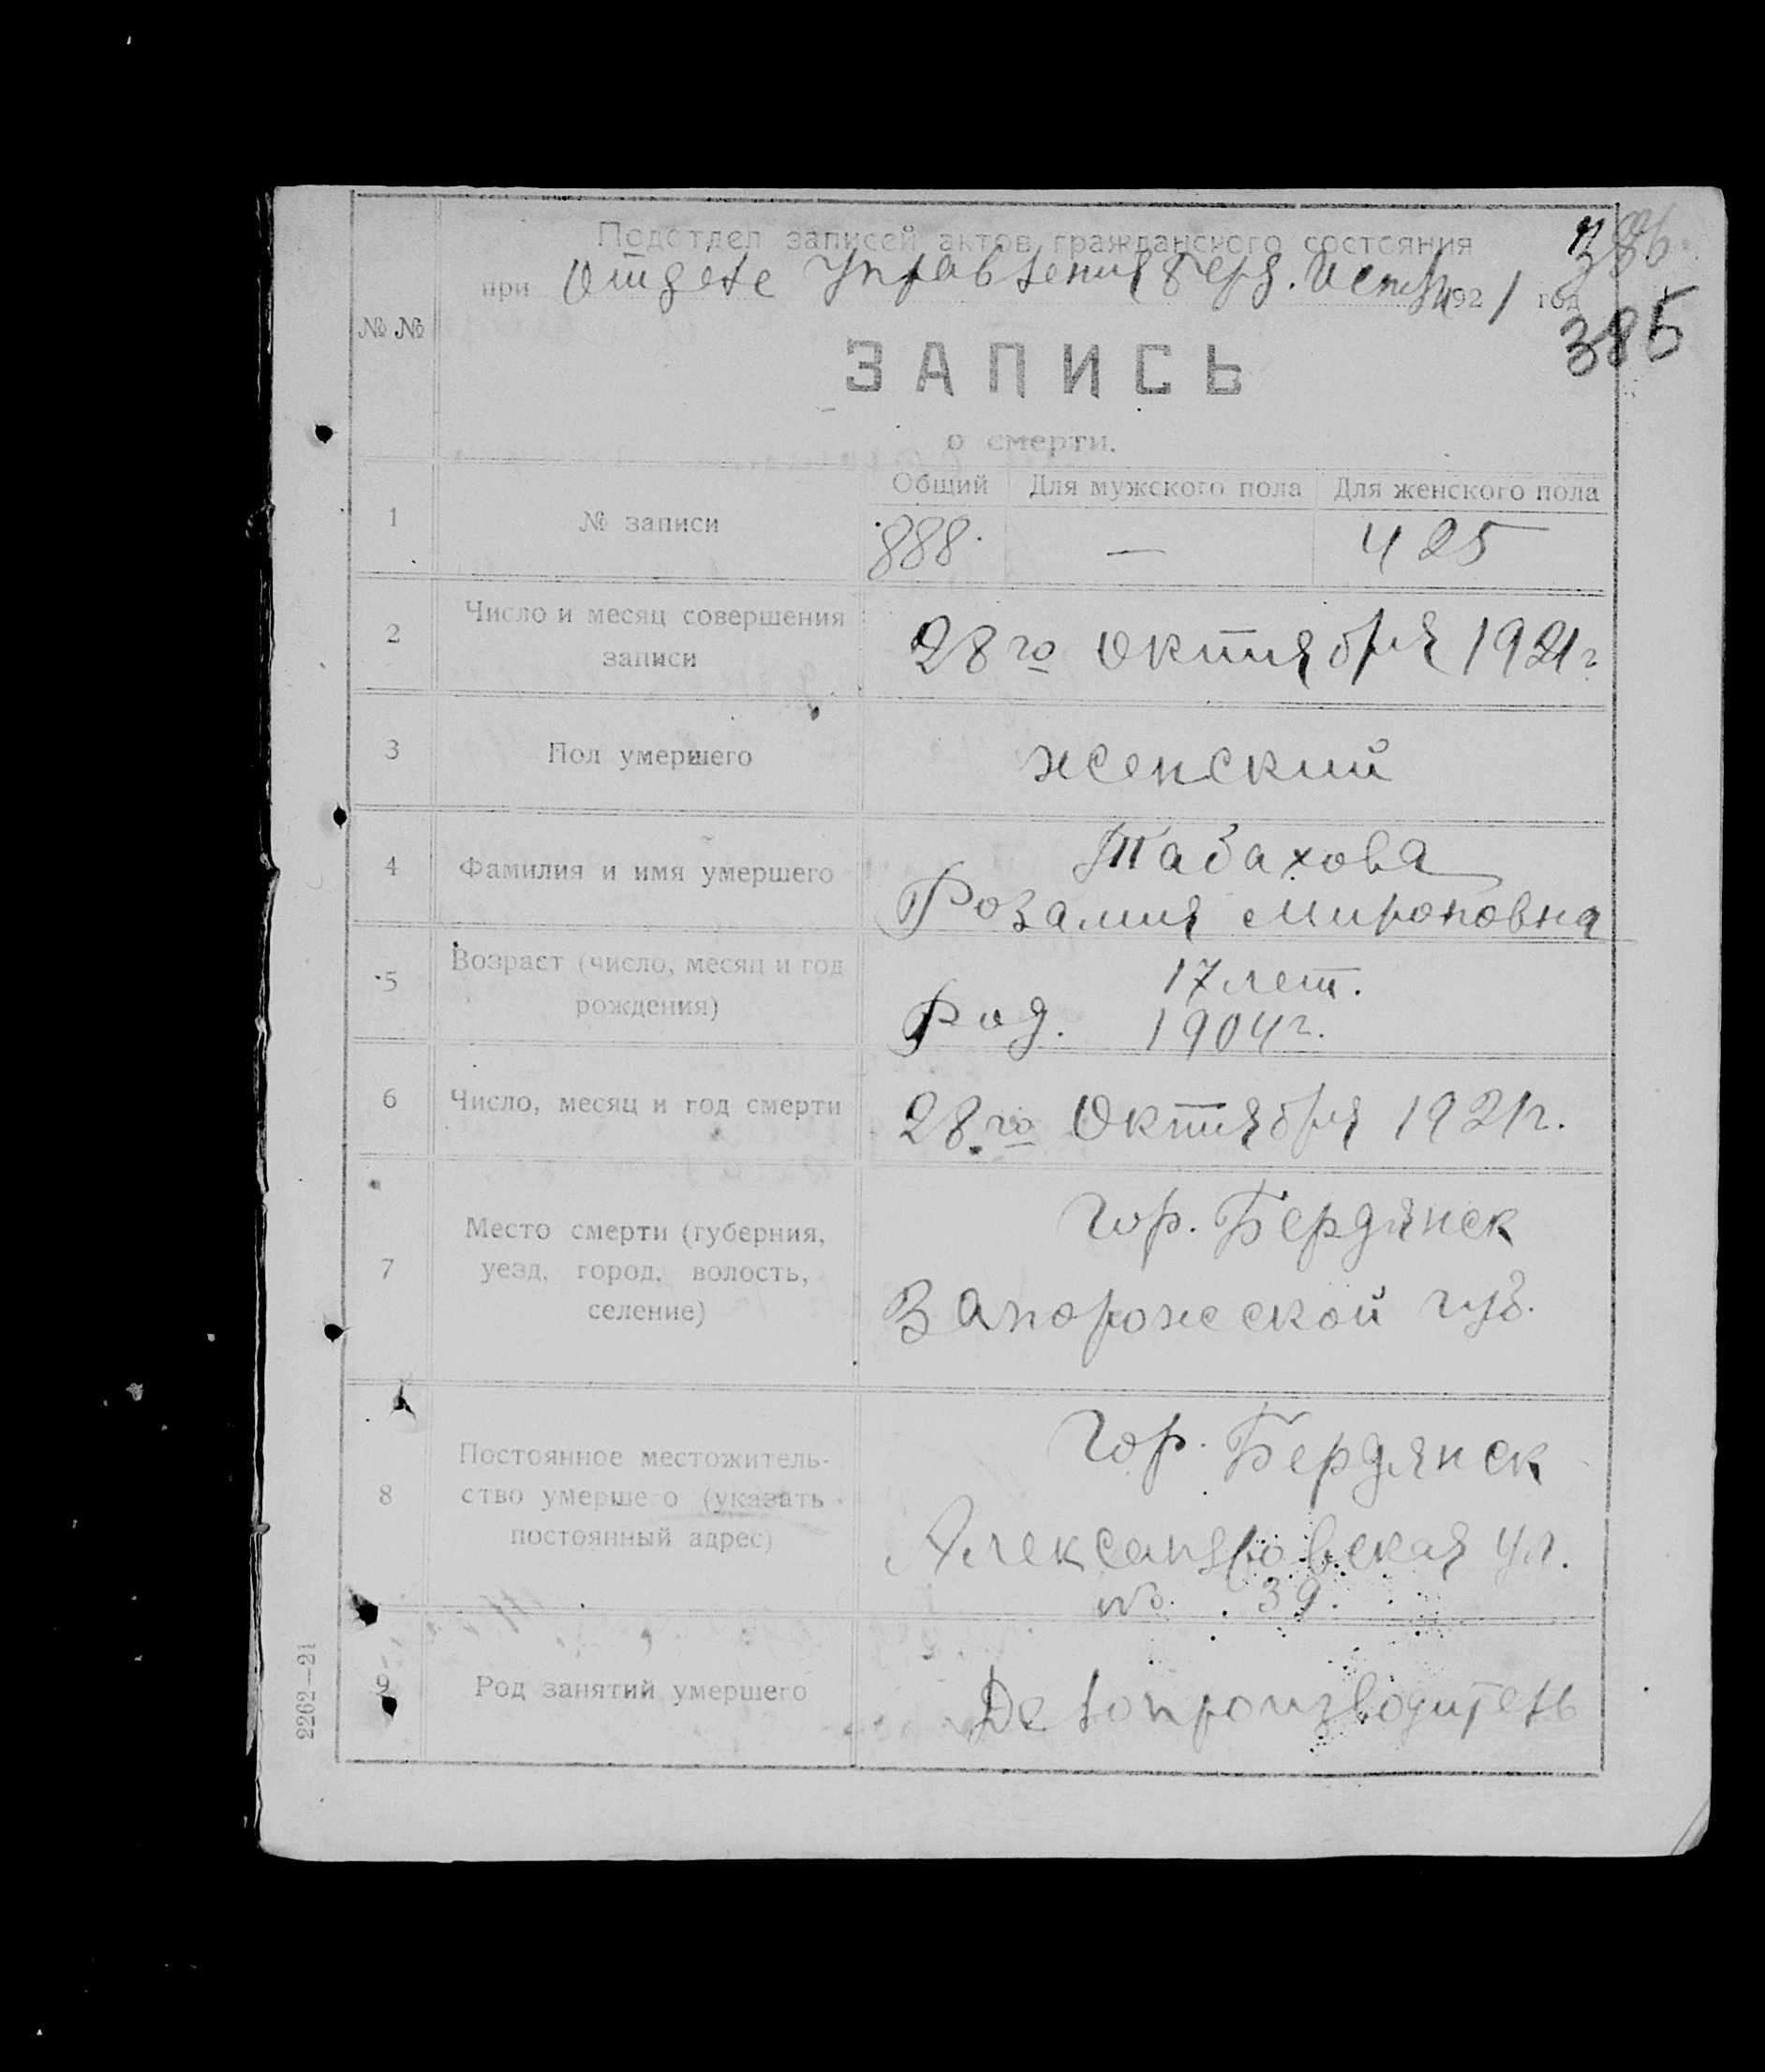 Подотдел записей актов гражданского состояния
при Отделе Управления Берд. 1921 год
385
№ №
ЗАПИСЬ
о смерти.
Общий Для мужского пола Для женского пола
1 № записи 888. — 425
2 Число и месяц совершения
записи
28го Октября 1921г
3 Пол умершего женский
4 Фамилия и имя умершего
Табахова
Розалия Мироновна
5 Возраст (число, месяц и год
рождения)
17 лет.
Род. 1904г.
6 Число, месяц и год смерти 28го Октября 1921г.
7 Место смерти (губерния,
уезд, город, волость,
селение)
Гор. Бердянск
Запорожской губ.
8 Постоянное местожитель-
ство умершего (указать
постоянный адрес)
Гор. Бердянск
Александровская ул.
№ 39.
9 Род занятий умершего Делопроизводитель
2262—21